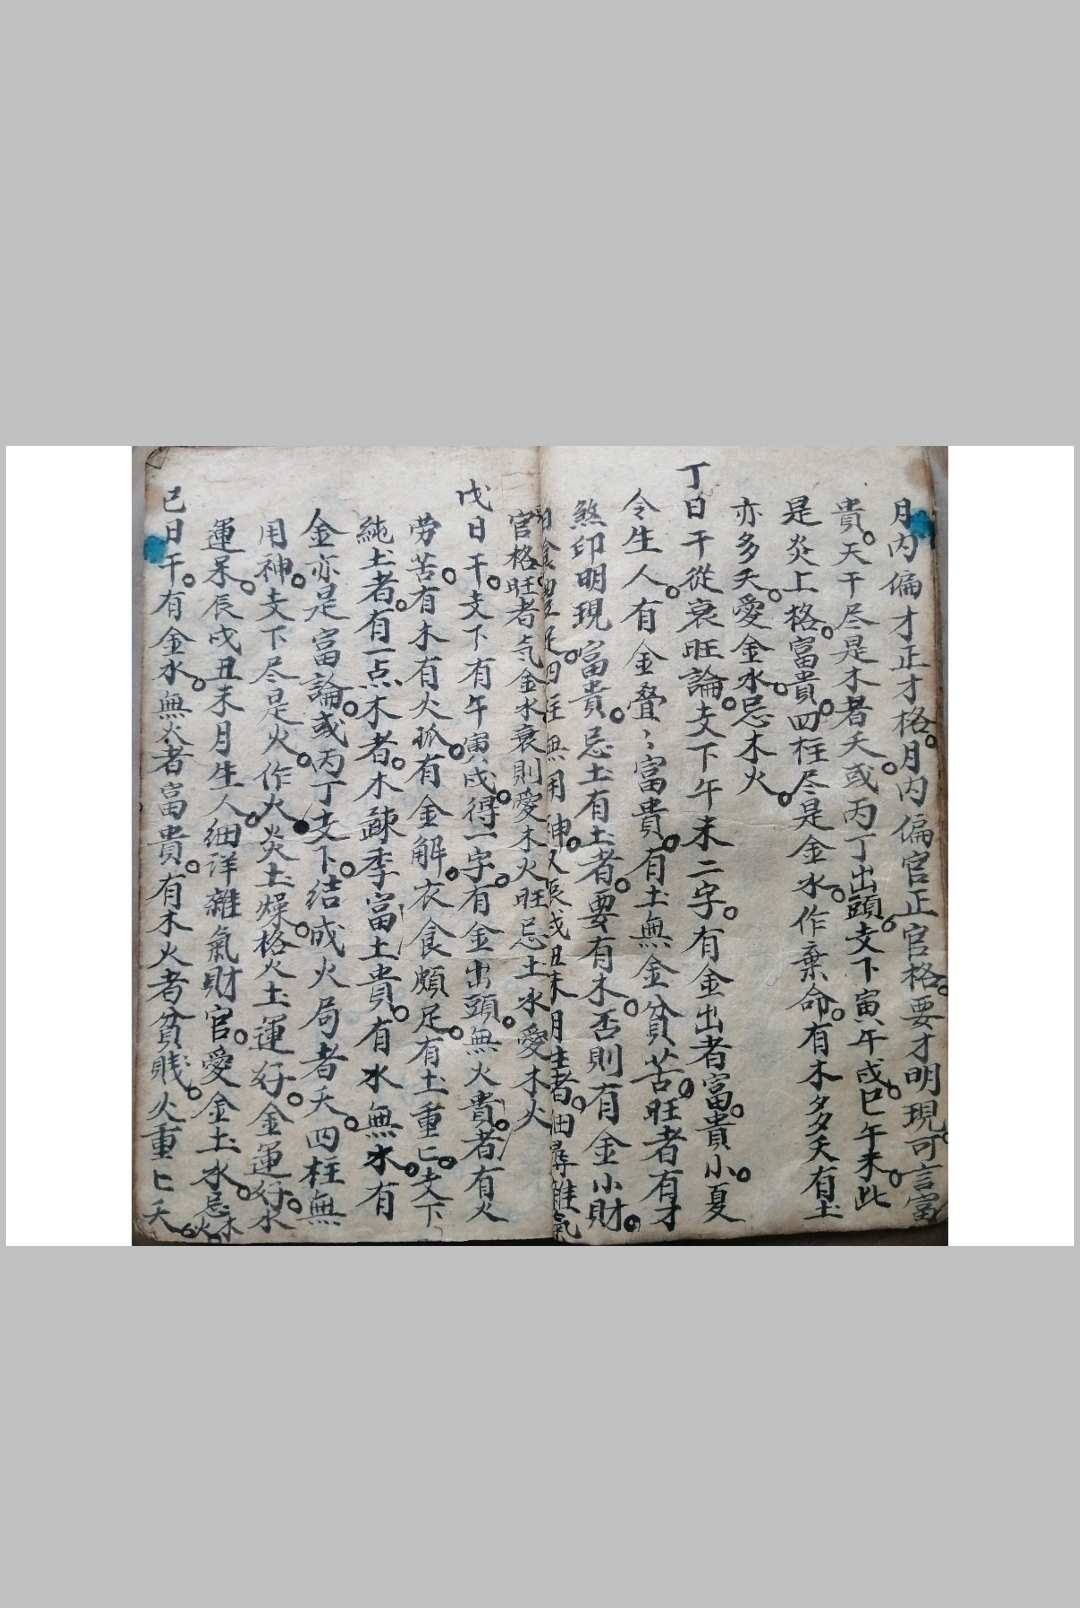 月内偏才正才格。月内偏官正官格。要才明現。可言富
貴。天干尽是木者夭。或丙丁出頭。支下寅午戌巳午未。此
是炎上格。富貴。四柱尽是金水。作棄命。有木多夭。有土
亦多夭。愛金水。忌木火。
丁日干從衰旺論。支下午未二字。有金出者富。貴小。夏
令生人。有金叠〻富貴。有土無金貧苦。旺者有才
煞印明現富貴。忌土有土者。要有木。否則有金小財。
四柱無用神。又辰戌丑未月生者。细尋雜氣
官格旺者忌金水衰則愛木火旺忌土水愛木火
戊日干。支下有午寅戌。得一字。有金出頭。無火貴。者有火
劳苦。有木有火孤。有金解。衣食頗足。有土重匕。支下
純土者。有一点木者。木疎季富土貴。有水無水。有
金亦是富論。或丙丁支下。结成火局者夭。四柱無
用神。支下尽是火。作火炎土燥格。火土運好。金運好。水
運呆。辰戌丑未月生人。细详雜氣財官。愛金土水。忌木火。
巳日干。有金水。無火者富貴。有木火者貧賎。火重匕夭。